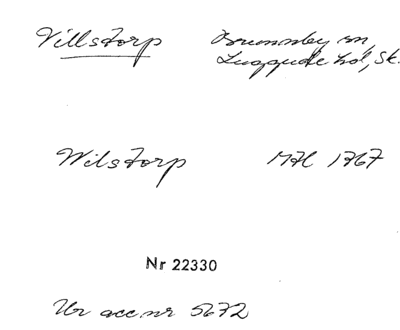 Villstorp Brunnby sn,
Luggude hd, Sk.
Wilstorp MH 1767
Nr 22330
Ur acc nr 5672